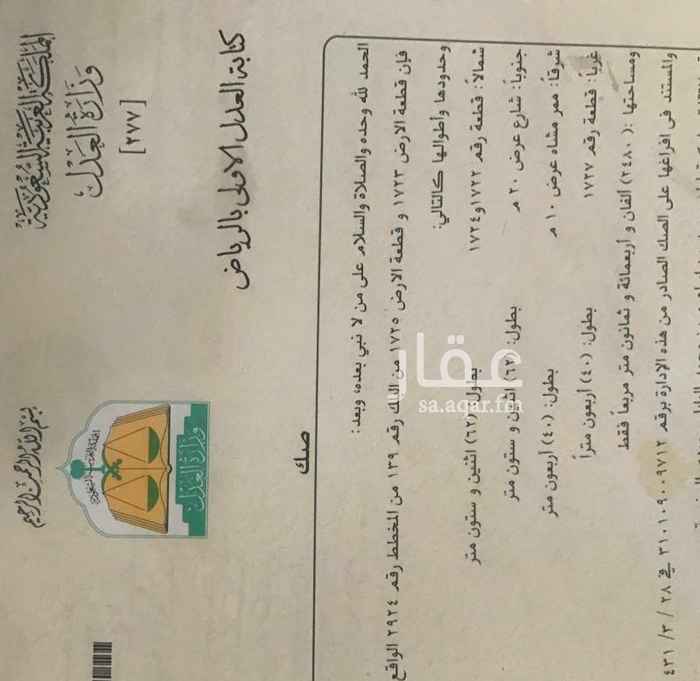 المملكة العربية السعودية
وزارة العدل
[٢٧٧]
كتابة العدل الأولى بالرياض
بسم الله الرحمن الرحيم
وزارة العدل
صك
الحمد لله وحده والصلاة والسلام على من لا نبي بعده، وبعد:
فإن قطعة الارض ١٧٢٣ و قطعة الارض ١٧٢٥ من البلك رقم ١٣٩ من المخطط رقم ٢٩٢٤ الواقع
وحدودها وأطوالها كالتالي:
شمالا: قطعة رقم ١٧٢٢و١٧٢٤ بطول: (٦٢) اثنين و ستون متر
جنوباً: شارع عرض ٢٠ م بطول: (٦٢) اثنين و ستون متر
شرقاً: ممر مشاه عرض ١٠ م بطول: (٤٠) أربعون متر
غرباً: قطعة رقم ١٧٢٧ بطول: (٤٠) أربعون متراً
ومساحتها :(٢٤٨٠) ألفان و أربعمائة و ثمانون متر مربعاً فقط
والمستند في افراغها على الصك الصادر من هذه الإدارة برقم ٣١٠١٠٩٠٠٩٧١٢ في ٢٨ / ٣ / ٤٣١
عقار
sa.aqar.fm